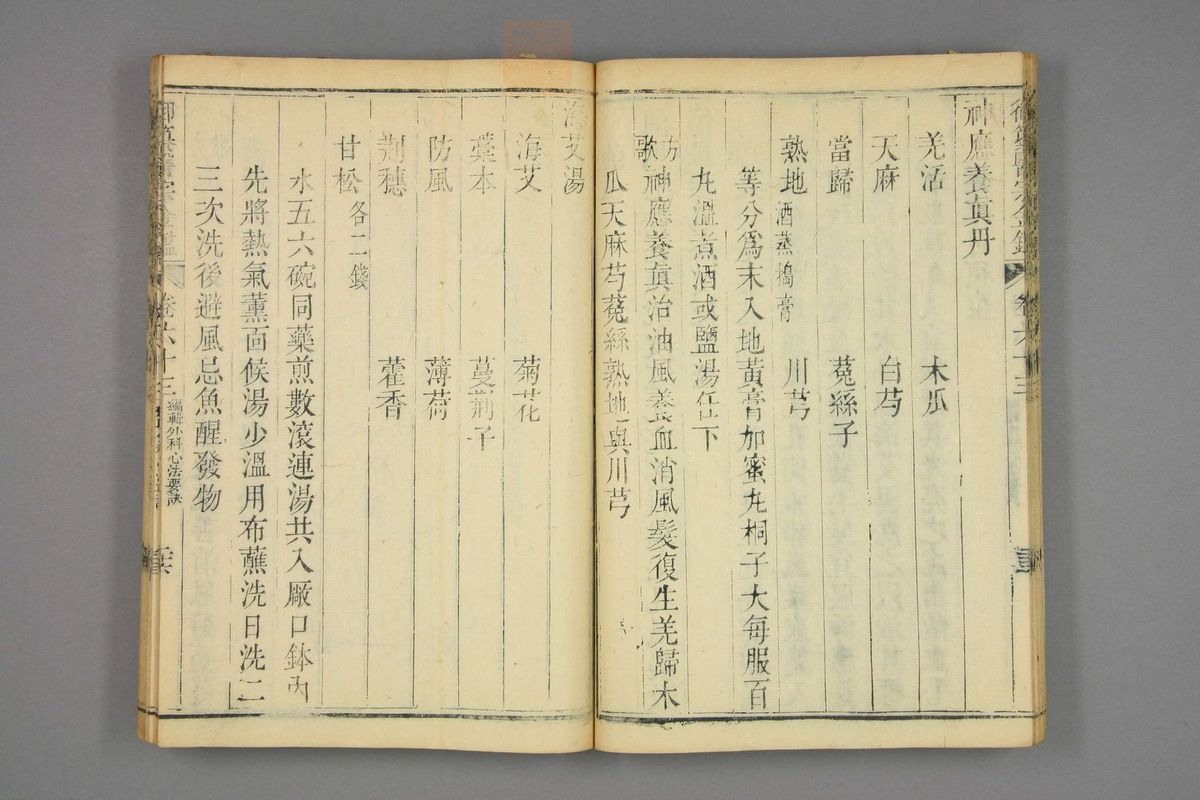 御纂醫宗金鑑 卷六十三
神應養眞丹
羌活 木瓜
天麻 白芍
當歸 菟絲子
熟地酒蒸搗膏 川芎
等分爲末入地黃膏加蜜丸桐子大每服百
丸溫煮酒或鹽湯任下
方歌 神應養眞治油風養血消風髮復生羌歸木
瓜天麻芍菟絲熟地與川芎
海艾湯
海艾 菊花
藁本 蔓荆子
防風 薄荷
荆穗 藿香
甘松各二錢
水五六碗同藥煎數滾連湯共入厰口鉢內
先將熱氣薰面候湯少溫用布蘸洗日洗二
三次洗後避風忌魚醒發物
御纂醫宗金鑑 卷六十三 編輯外科心法要訣